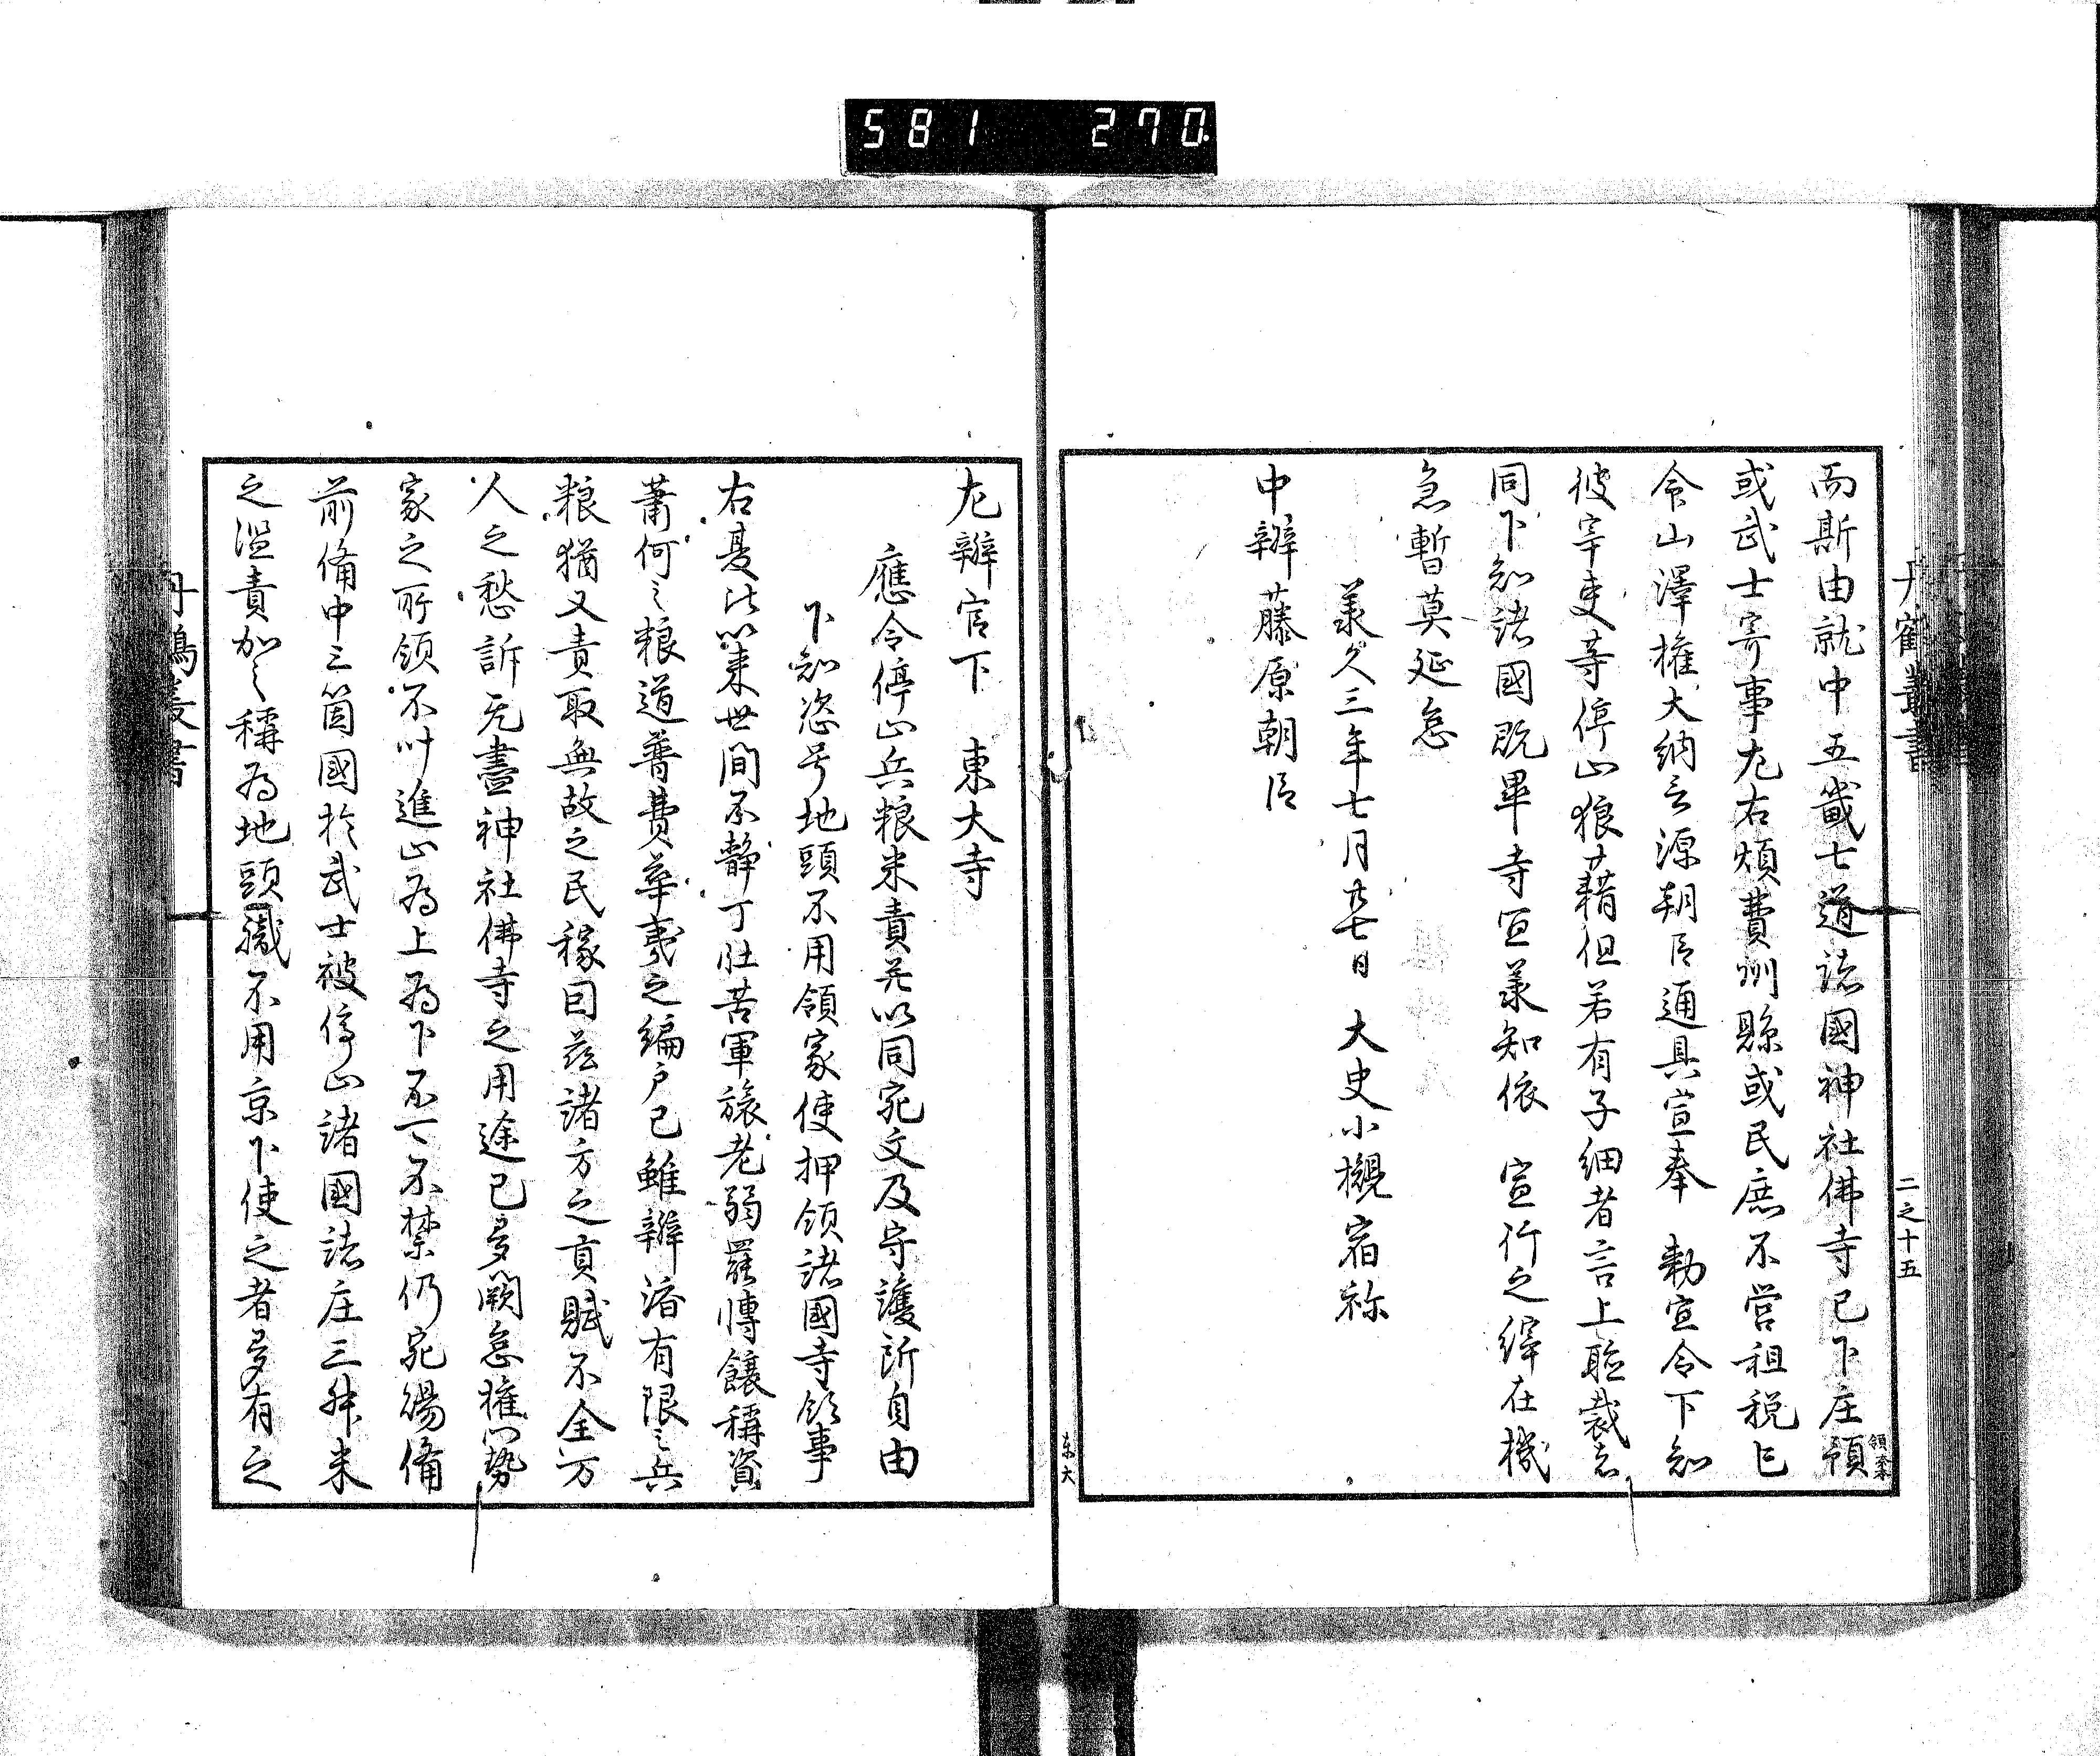 581 270.
丹鶴叢書
二之十五
而斯由就中五畿七道諸國神社佛寺已下庄領
或武士寄事左右煩費州縣或民庶不営租税已
令山澤権大納言源朝臣通具宣奉 勅宣令下知
彼宰吏等停止狼藉但若有子細者言上聴裁者
同下知諸國既畢寺宜羕知依 宣行之縡在機
急暫莫延怠
羕久三年七月廿七日 大史小槻宿祢
中辨藤原朝臣
东大
左辨官下 東大寺
應令停止兵粮米責并以同宛文及守護所自由
下知恣号地頭不用領家使押領諸國寺領事
右夏以来世間不静丁壮苦軍旅老弱罷轉饟稱資
蕭何之粮道普費華夷之編戸已雖辨済有限之兵
粮猶又責取無故之民稼因茲諸方之貢賦不全万
人之愁訴无盡神社佛寺之用途已多闕怠権門勢
家之所領不叶進止為上為下不可不禁仍宛賜備
前備中三箇國於武士被停止諸國諸庄三升米
之滥責加之稱為地頭職不用京下使之者多有之
丹鶴叢書